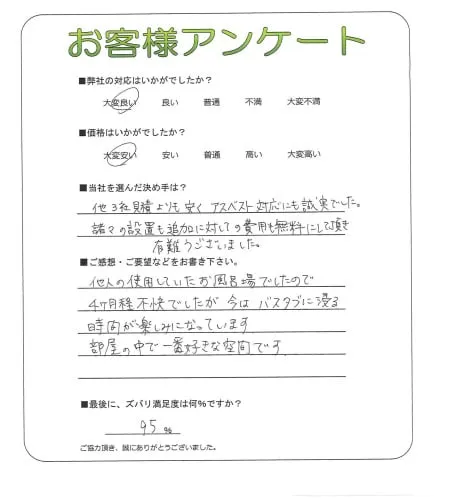 お客様アンケート
■弊社の対応はいかがでしたか?
大変良い 良い 普通 不満 大変不満
■価格はいかがでしたか?
大変安い 安い 普通 高い 大変高い
■当社を選んだ決め手は?
他3社見積よりも安く アスベスト対応にも誠実でした。
諸々の設置も追加に対しての費用も無料にして頂き
有難うございました。
■ご感想・ご要望などをお書き下さい。
他人の使用していたお風呂場でしたので
4ヶ月程不快でしたが今は バスタブに浸る
時間が楽しみになっています
部屋の中で一番好きな空間です
■最後に、ズバリ満足度は何%ですか?
95 %
ご協力頂き、誠にありがとうございました。